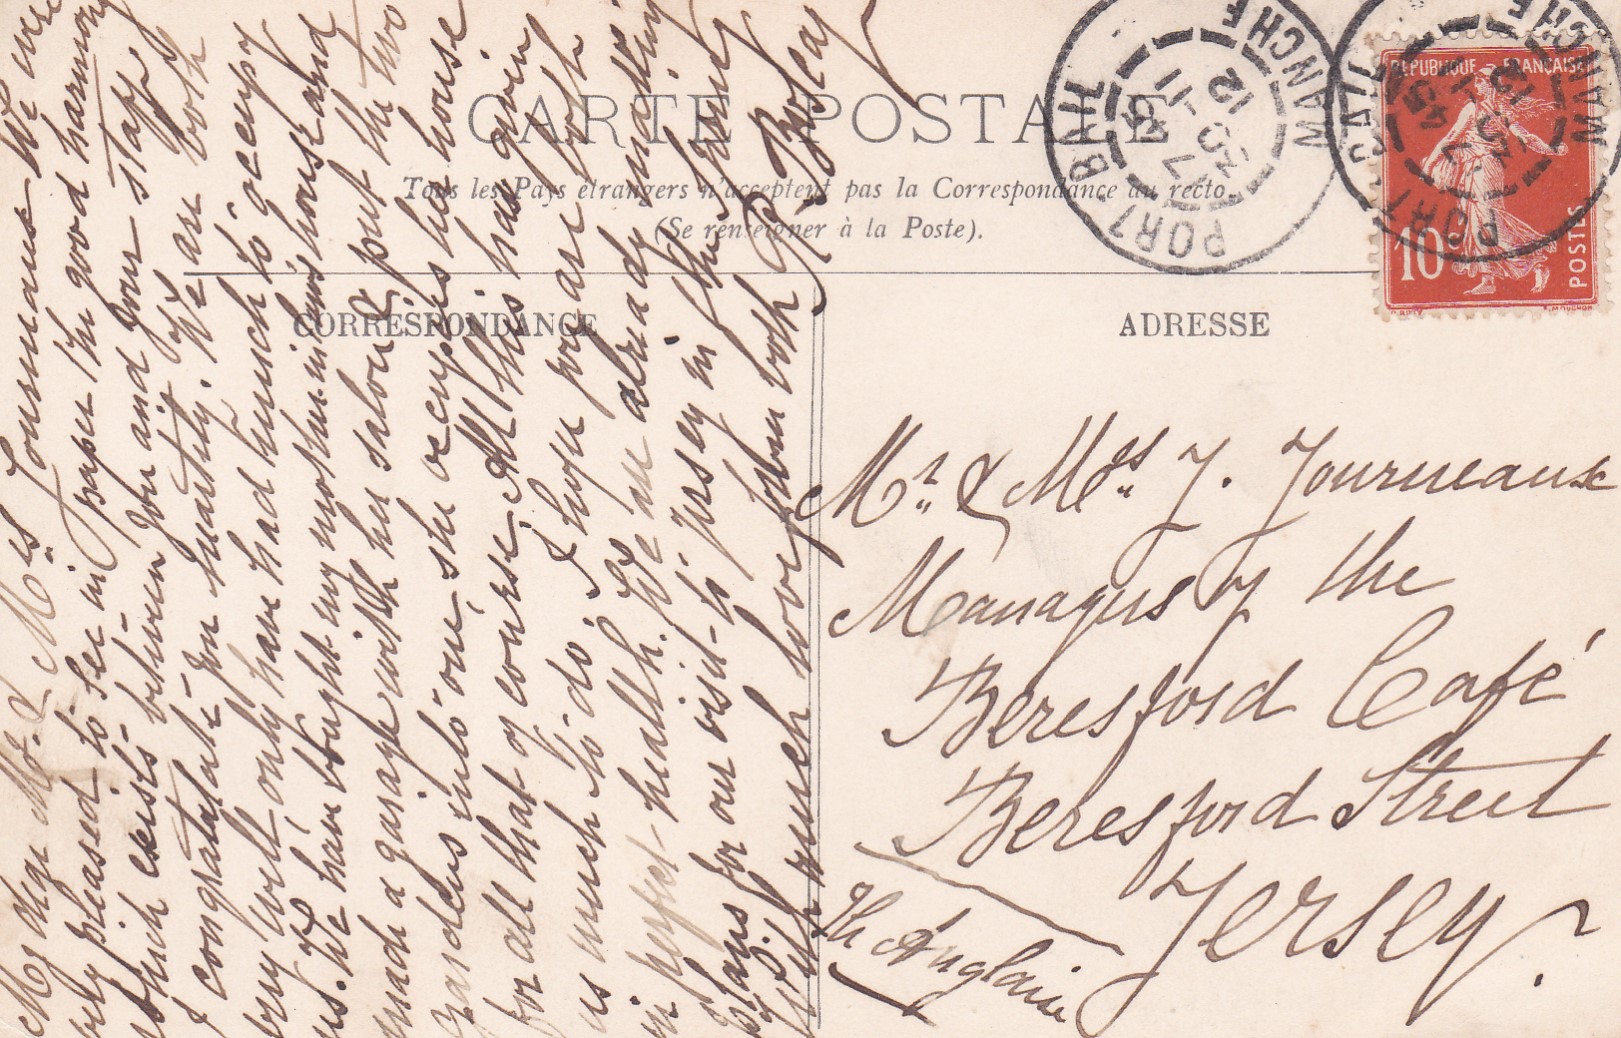 CARTE POSTALE
Tous les Pays étrangers n'acceptent pas la Correspondance au recto.
(Se renseigner à la Poste).
CORRESPONDANCE
ADRESSE
PORT-BAIL
MANCHE
PORT-BAIL
MANCHE
REPUBLIQUE FRANÇAISE
10
POSTES
E. MOUCHON
My dear Mr. & Mrs Journeaux We were
very pleased to see in paper the good harmony
which exists between you and your staff
& congratulate you heartily. We are both
very well, only have had lunch to occupy
us. We have bought my mother in law's house and
made a garage with her salon & put the two
gardens into one, she occupies the house
for all that of course. All this has given
us much to do. I hope you are both
in perfect health. We are already making
plans for our visit to Jersey in the
With much love from both
Mr & Mrs J. Journeaux
Managers of the
Beresford Café
Beresford Street
Jersey
Ile Anglaise